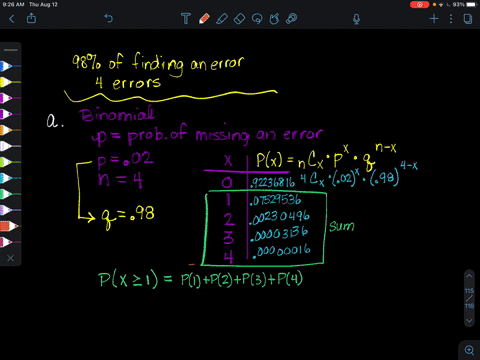 9:26 AM Thu Aug 12
93%
98% of finding an error
4 errors
a. Binomial:
p = prob. of missing an error
p = .02
n = 4
q = .98
x P(x) = nCx · p^x · q^n-x
0 .92236816 4Cx · (.02)^x · (.98)^4-x
1 .07529536
2 .00230496
3 .00003136
4 .00000016
sum
P(x ≥ 1) = P(1) + P(2) + P(3) + P(4)
115
116